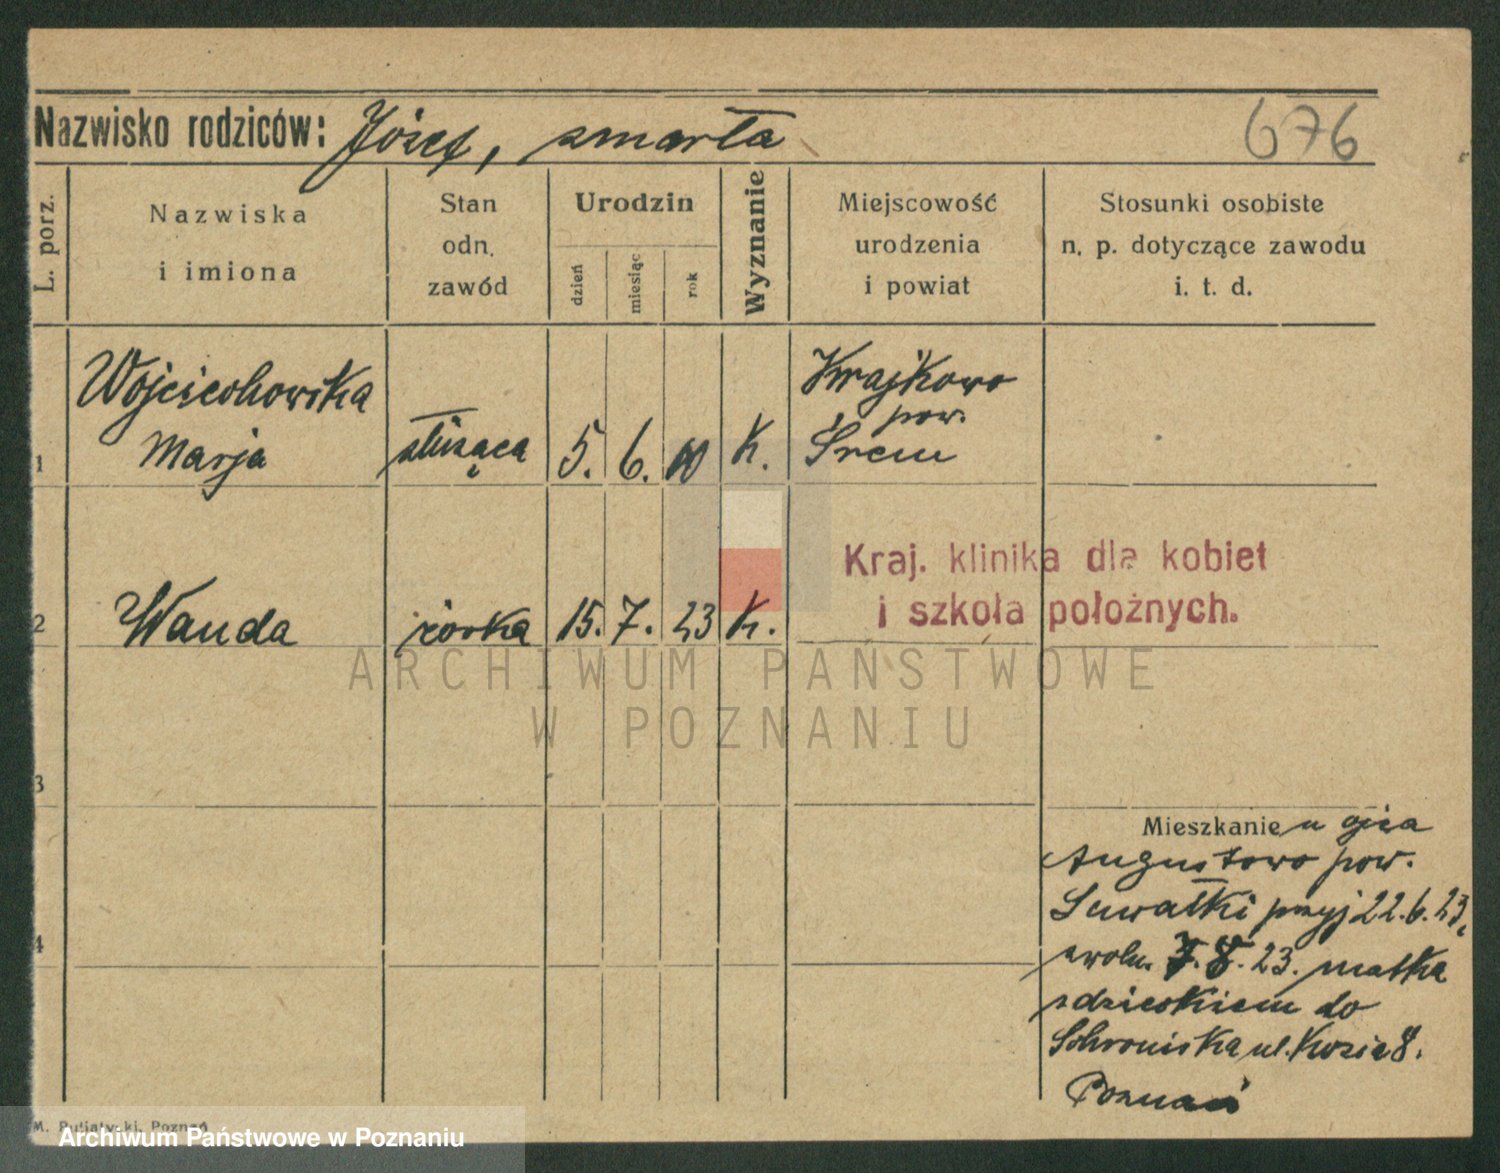 Nazwisko rodziców: Józef, zmarła
676
L. porz.
Nazwiska
i imiona
Stan
odn.
zawód
Urodzin
dzień
miesiąc
rok
Wyznanie
Miejscowość
urodzenia
i powiat
Stosunki osobiste
n. p. dotyczące zawodu
i. t. d.
1
Wojciechowska
Marja
służąca
5. 6. 00 K.
Krajkowo
pow.
Śrem
2
Wanda
córka
15. 7. 23 K.
Kraj. klinika dla kobiet
i szkoła położnych.
3
4
Mieszkanie u ojca
Augustowo pow.
Suwałki przyj 22.6.23,
zwoln. 7. 8. 23. matka
z dzieckiem do
Schroniska ul. Kozia 8.
Poznań
ARCHIWUM PAŃSTWOWE
W POZNANIU
M. Putiatycki, Poznań
Archiwum Państwowe w Poznaniu